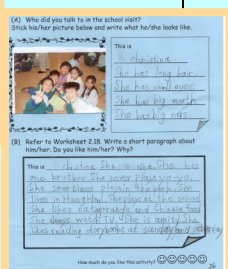 (A) Who did you talk to in the school visit?
Stick his/her picture below and write what he/she looks like.
This is
christina.
She has long hair.
She has
She has big mouth
She has big ears.
(B) Refer to Worksheet 2.18. Write a short paragraph about
him/her. Do you like him/her? Why?
This is christina. She is nine. She has
one brother. She never plays yo-yo.
She sometimes plays in the park. She
lives in Hung Hom. She plays at the school
She likes and Chinese food
She watch T.V. She is She
likes reading storybooks at sunday and saturday
How much do you like this activity?
26